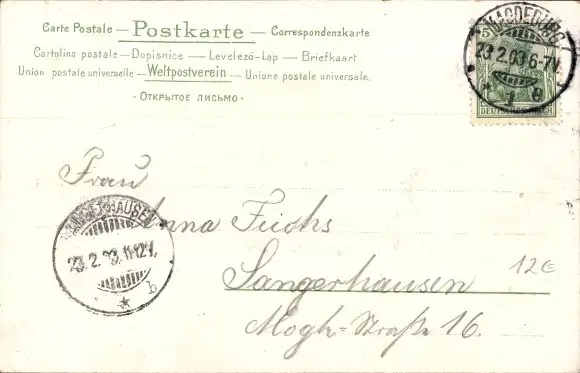 Carte Postale — Postkarte — Correspondenzkarte
Cartolina postale — Dopisnice — Levelező-Lap — Briefkaart
Union postale universelle — Weltpostverein — Unione postale universale.
· ОТКРЫТОЕ ПИСЬМО ·
MAGDEBURG
5
23.2.03.6-7N.
* 1 e
DEUTSCHES REICH
Frau
Anna Fuchs
SANGERHAUSEN
23.2.03.11-12V.
* b
Sangerhausen
12€
Straße 16.